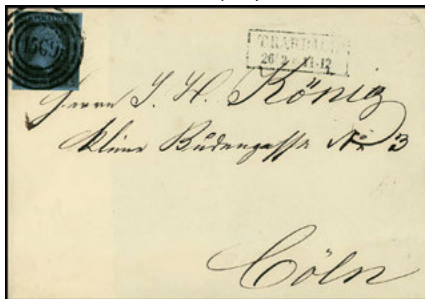 1569
TRARBACH
26 2 * 11-12
Herrn J. H. König
kleine Budengasse No 3
Cöln